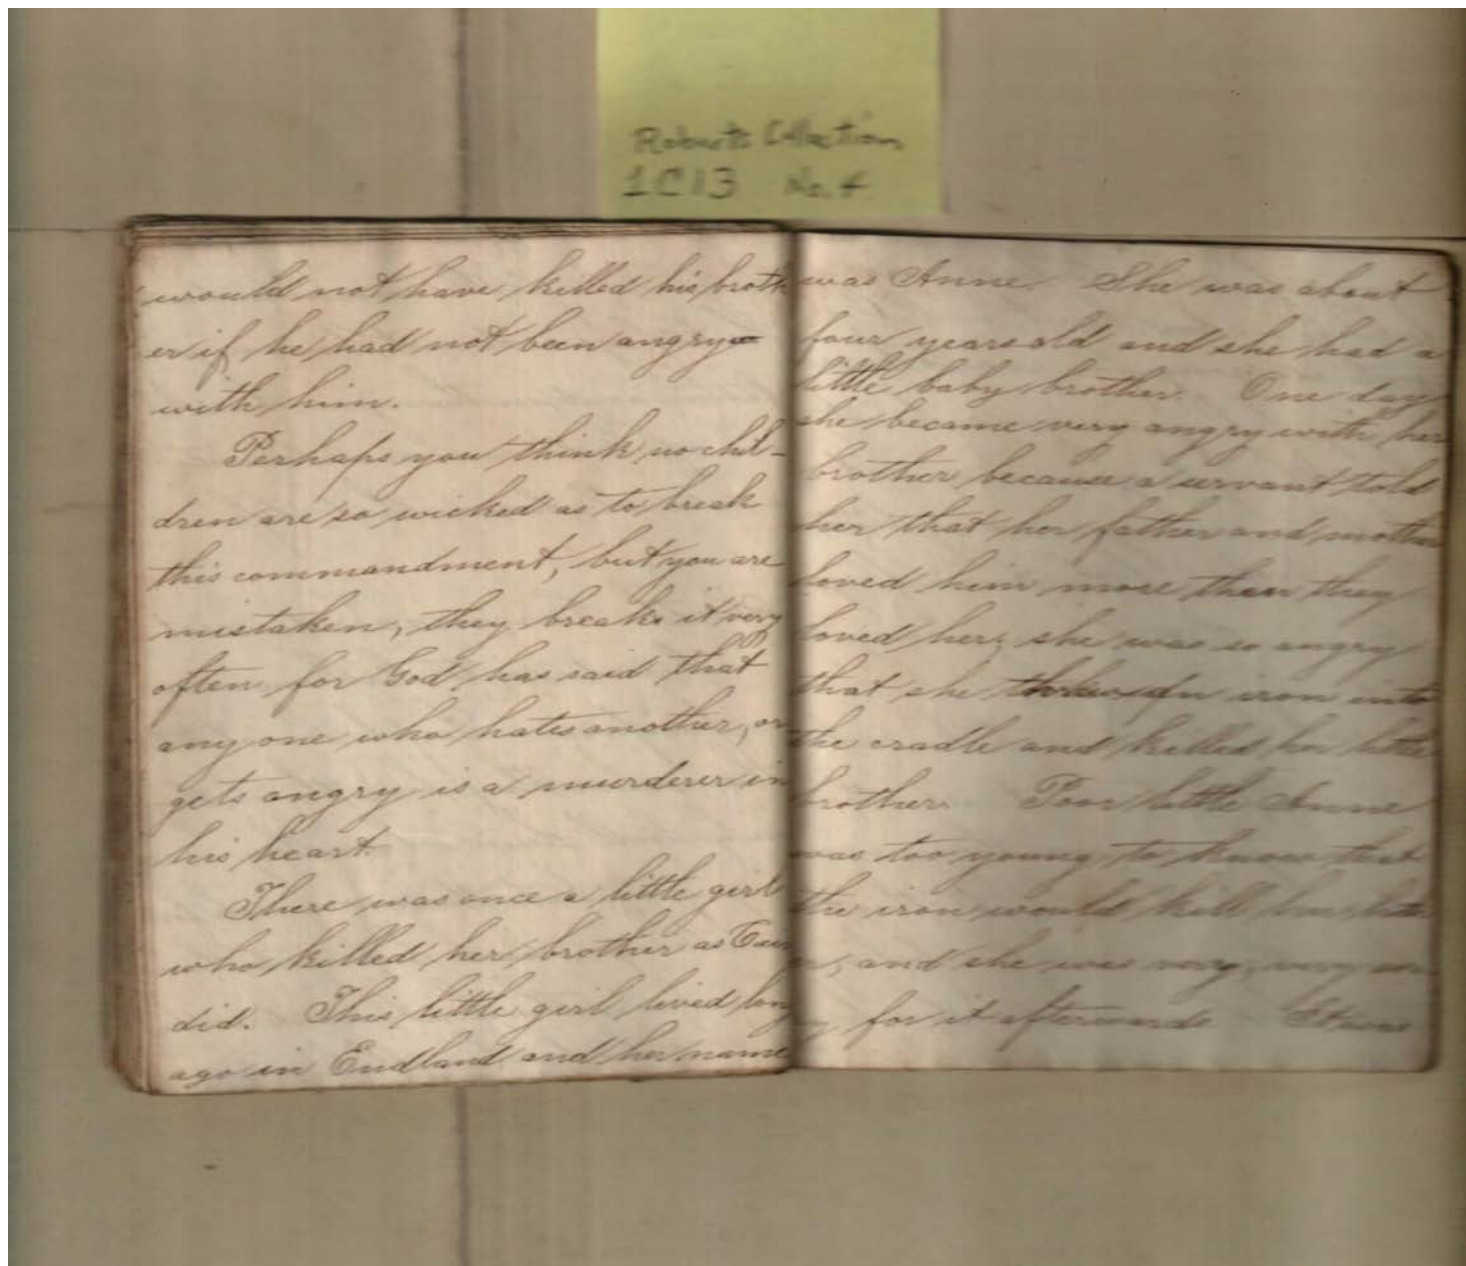 Roberts Collection
1C13 No. 4
would not have killed his broth
er if he had not been angry
with him.
Perhaps you think no chil-
dren are so wicked as to break
this commandment, but you are
mistaken, they break it very
often for God has said that
any one who hates another, or
gets angry is a murderer in
his heart.
There was once a little girl
who killed her brother as Cain
did. This little girl lived long
ago in Endland and her name
was Anne. She was about
four years old and she had a
little baby brother. One day
she became very angry with her
brother because a servant told
her that her father and mother
loved him more than they
loved her; she was so angry
that she an iron into
the cradle and killed her little
brother. Poor little Anne
was too young to know that
the iron would kill her
and she was very, very
for it afterwards. It was